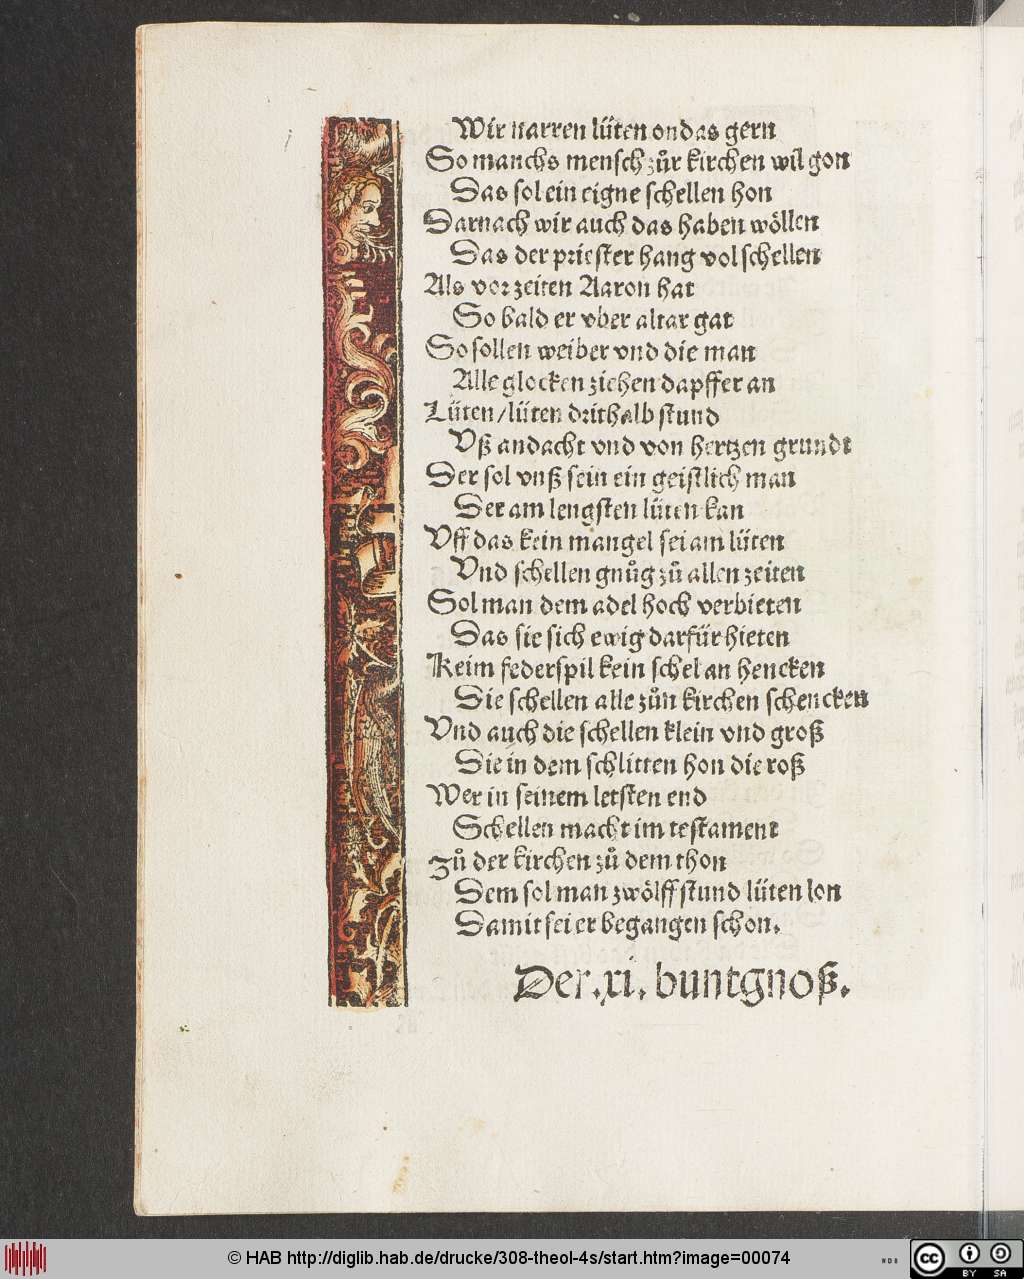 Wir narren lüten on das gern
So manchs mensch zůr kirchen wil gon
Das sol ein eigne schellen hon
Darnach wir auch das haben wöllen
Das der priester hang vol schellen
Als vor zeiten Aaron hat
So bald er vber altar gat
So sollen weiber vnd die man
Alle glocken ziehen dapffer an
Lüten/lüten drithalb stund
Vß andacht vnd von hertzen grundt
Der sol vnß sein ein geistlich man
Der am lengsten lüten kan
Vff das kein mangel sei am lüten
Vnd schellen gnůg zů allen zeiten
Sol man dem adel hoch verbieten
Das sie sich ewig darfür hieten
Keim federspil kein schel an hencken
Die schellen alle zůn kirchen schencken
Vnd auch die schellen klein vnd groß
Die in dem schlitten hon die roß
Wer in seinem letsten end
Schellen macht im testament
Zů der kirchen zů dem thon
Dem sol man zwölff stund lüten lon
Damit sei er begangen schon.
Der .xi. buntgnoß.
© HAB http://diglib.hab.de/drucke/308-theol-4s/start.htm?image=00074
WDB
cc
BY SA